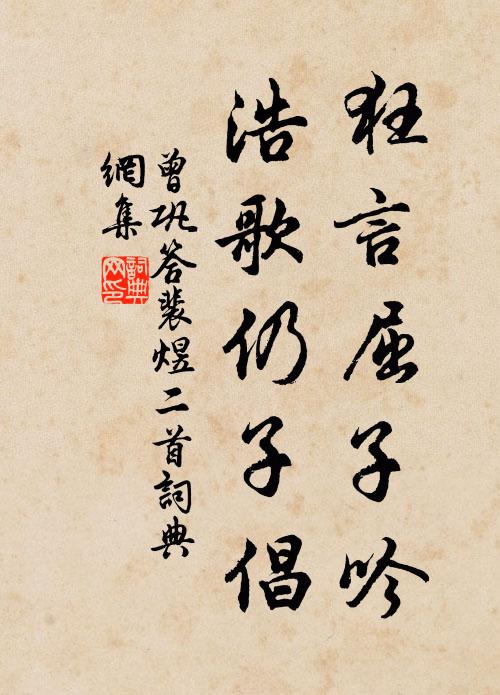 狂言屈子吟
浩歌仍子倡
曾巩答裴煜二首詞典
網集
詞典
网印